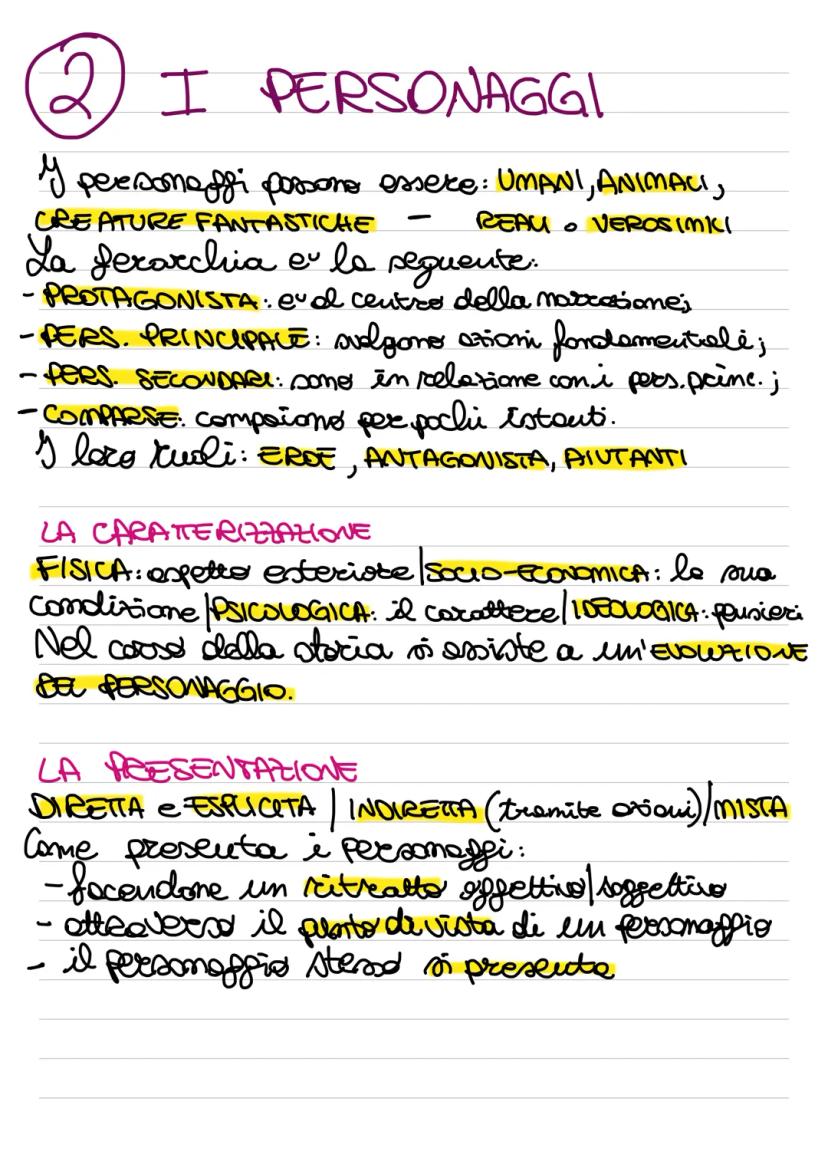 2 I PERSONAGGI
I personaggi possono essere: UMANI, ANIMALI,
CREATURE FANTASTICHE - REALI o VEROSIMILI
La gerarchia e' la seguente:
- PROTAGONISTA: e' al centro della narrazione;
- PERS. PRINCIPALE: svolgono azioni fondamentali;
- PERS. SECONDARI: sono in relazione con i pers. princ.;
- COMPARSE: compaiono per pochi istanti.
I loro ruoli: EROE, ANTAGONISTA, AIUTANTI
LA CARATTERIZZAZIONE
FISICA: aspetto esteriore | SOCIO-ECONOMICA: la sua
condizione | PSICOLOGICA: il carattere | IDEOLOGICA: pensieri
Nel corso della storia si assiste a un'EVOLUZIONE
DEL PERSONAGGIO.
LA PRESENTAZIONE
DIRETTA e ESPLICITA | INDIRETTA (tramite azioni) | MISTA
Come presenta i personaggi:
- facendone un ritratto oggettivo | soggettivo
- attraverso il punto di vista di un personaggio
- il personaggio stesso si presenta